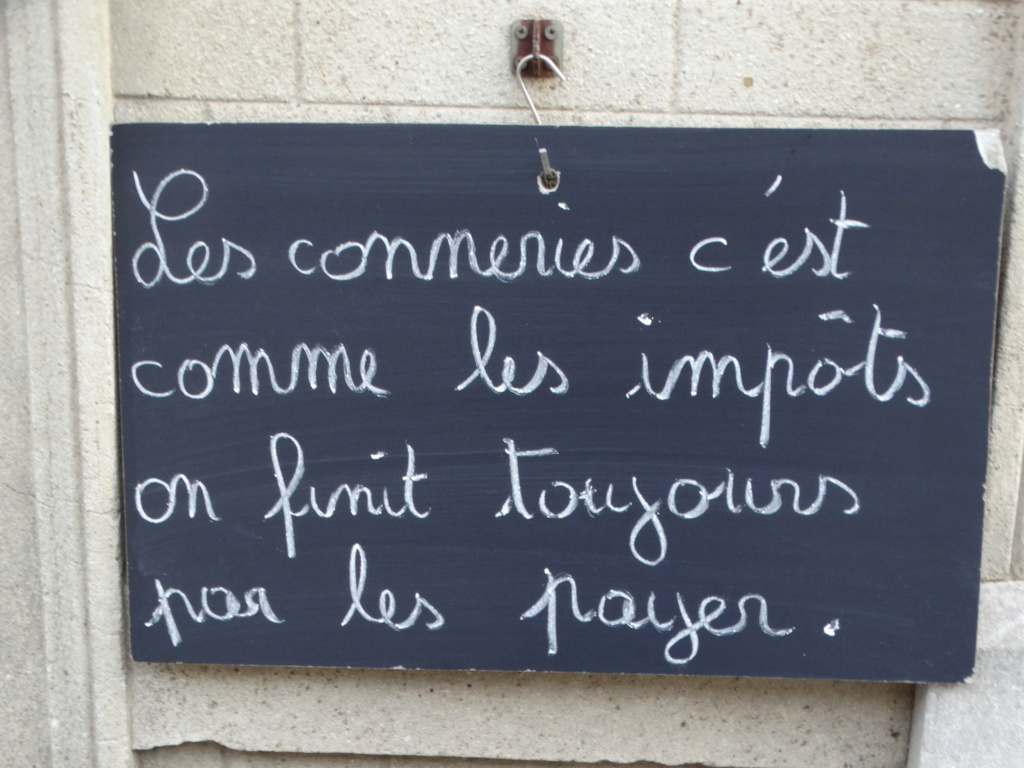 Les conneries c'est
comme les impôts
on finit toujours
par les payer.